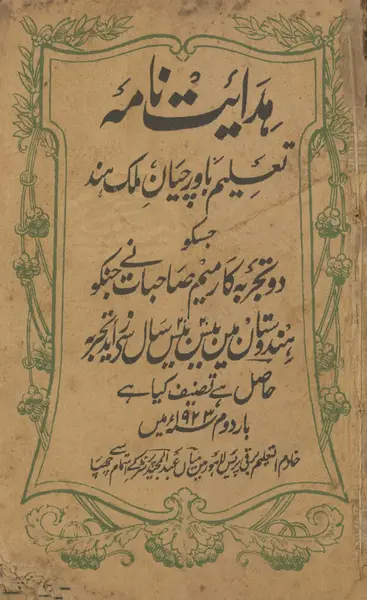 ہدایت نامہ
تعلیم باورچیان ملک ہند
جسکو
دو تجربہ کار میم صاحبات نے جنکو
ہندوستان مین بیس بیس سال سے زاید تجربہ
حاصل ہے تصنیف کیا ہے
بار دوم ۱۹۲۳ء میں
خادم التعلیم برقی پریس لاہور مین میاں عبدالمجید پرنٹر کے اہتمام سے چھپا